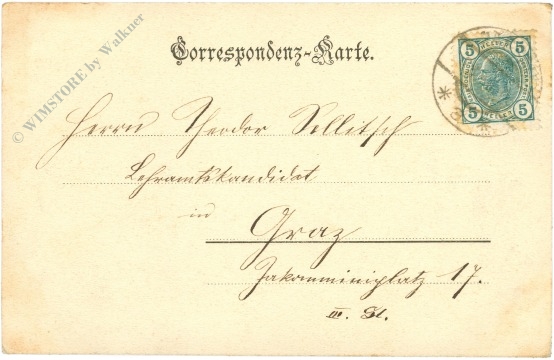 Correspondenz-Karte.
© WIMSTORE by Walkner
5 HELLER 5
5 HELLER 5
Herrn Theodor Sellitsch
Lehramtskandidat
in
Graz
Jakominiplatz 17.
III. St.